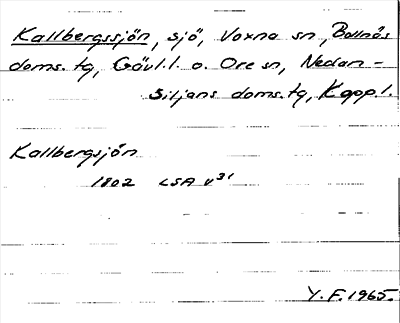 Kallbergssjön, sjö, Voxna sn, Bollnäs
doms.tg, Gävl.l. o. Ore sn, Nedan-
Siljans doms.tg, Kopp.l.
Kallbergsjön
1802 LSA v31
Y.F. 1965.